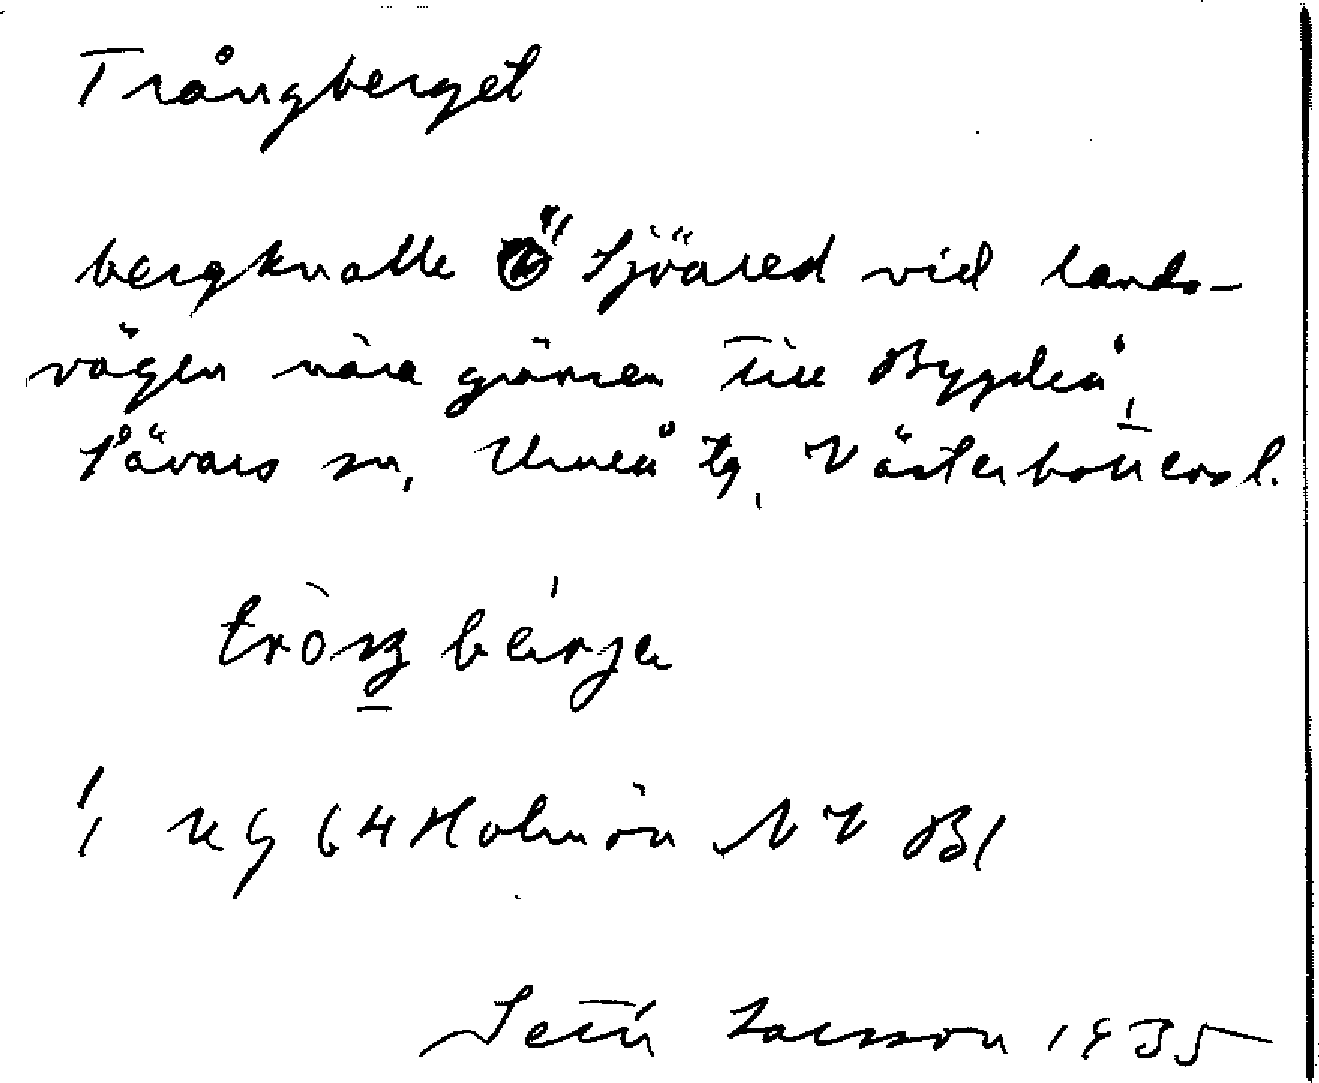 Trångberget
bergknalle Ö Sjöäred vid lands-
vägen nära gränsen till Bygdeå,
Sävars sn, Umeå tg, Västerbottens l.
tròŋbérje
/, K G 64 Holmön NV B1
Set Larsson 1935